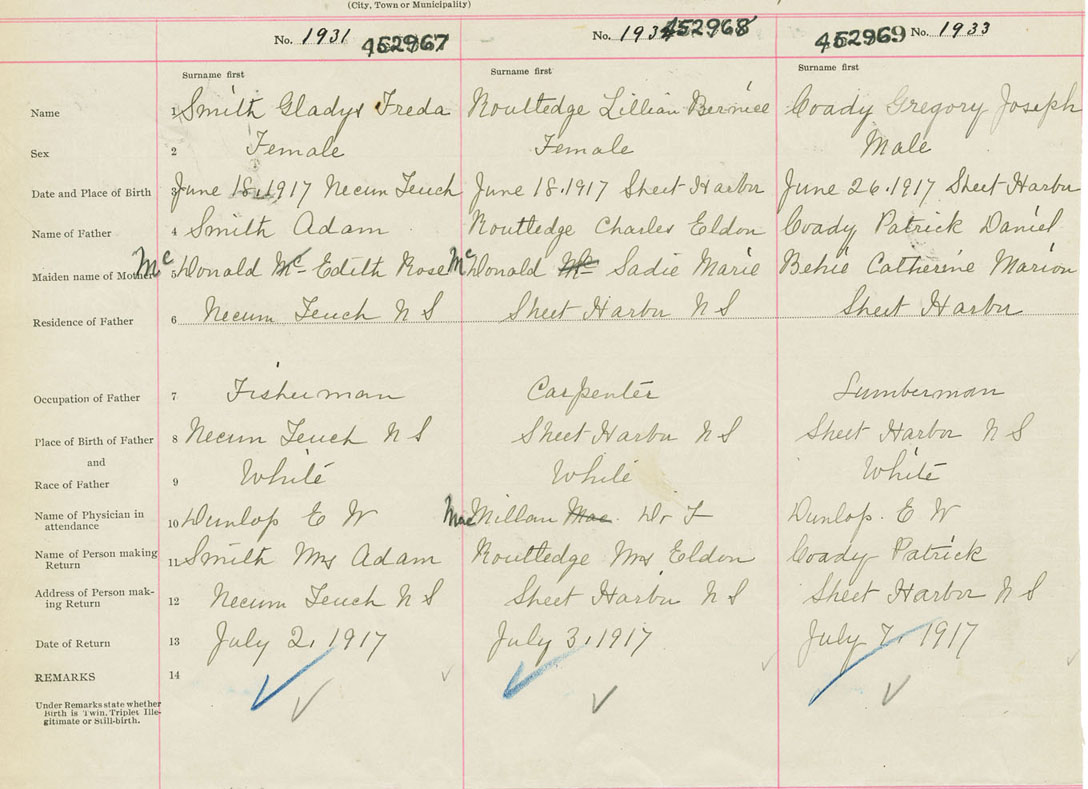 (City, Town or Municipality)
No. 1931 452967 No. 1932 452968 452969 No. 1933
Surname first Surname first Surname first
Name 1 Smith Gladys Freda Routledge Lillian Bernice Coady Gregory Joseph
Sex 2 Female Female Male
Date and Place of Birth 3 June 18, 1917 Necum Teuch June 18. 1917 Sheet Harbor June 26. 1917 Sheet Harbor
Name of Father 4 Smith Adam Routledge Charles Eldon Coady Patrick Daniel
Maiden name of Mother 5 Mc Donald Mc Edith Rose Mc Donald Mc Sadie Marie Behie Catherine Marion
Residence of Father 6 Necum Teuch N S Sheet Harbor N S Sheet Harbor
Occupation of Father 7 Fisherman Carpenter Lumberman
Place of Birth of Father 8 Necum Teuch N S Sheet Harbor N S Sheet Harbor N S
and
Race of Father 9 White White White
Name of Physician in
attendance 10 Dunlop E W Mac Millan Mac. Dr Dunlop. E W
Name of Person making
Return 11 Smith Mrs Adam Routledge Mrs Eldon Coady Patrick
Address of Person mak-
ing Return 12 Necum Teuch N S Sheet Harbor N S Sheet Harbor N S
Date of Return 13 July 2, 1917 July 3, 1917 July 7, 1917
REMARKS 14
Under Remarks state whether
Birth is Twin, Triplet Ille-
gitimate or Still-birth.